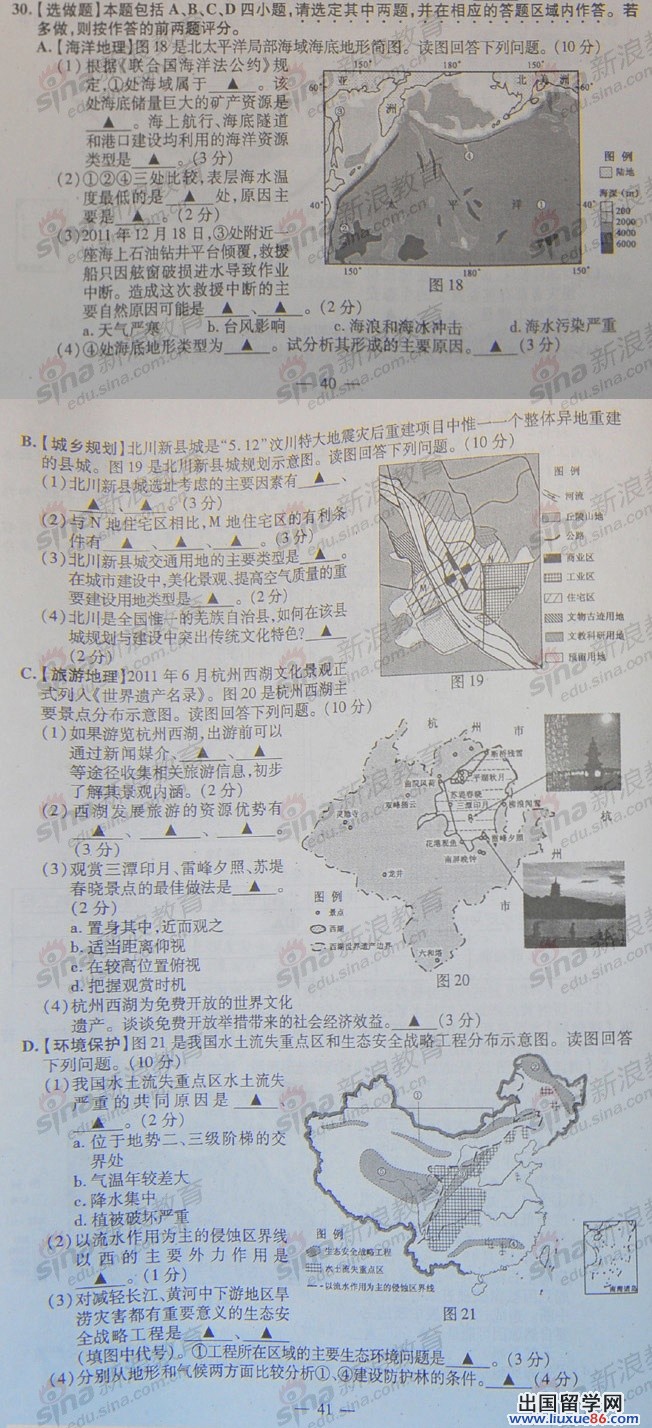 30.【选做题】本题包括A、B、C、D四小题,请选定其中两题,并在相应的答题区域内作答。若
多做,则按作答的前两题评分。
A.【海洋地理】图18是北太平洋局部海域海底地形简图。读图回答下列问题。(10分)
(1)根据《联合国海洋法公约》规
定,①处海域属于 ▲ 。该
处海底储量巨大的矿产资源是
▲ 。海上航行、海底隧道
和港口建设均利用的海洋资源
类型是 ▲ 。(3分)
(2)①②④三处比较,表层海水温
度最低的是 ▲ 处,原因主
要是 ▲ 。(2分)
(3)2011年12月18日,③处附近一
座海上石油钻井平台倾覆,救援
船只因舷窗破损进水导致作业
中断。造成这次救援中断的主
要自然原因可能是 ▲ 、 ▲ 。(2分)
a.天气严寒 b.台风影响 c.海浪和海冰冲击 d.海水污染严重
(4)④处海底地形类型为 ▲ 。试分析其形成的主要原因。 ▲ (3分)
150° 180° 150°
亚 洲 北 美 洲
60° 60°
40° 40°
太 平 洋
图例
陆地
海深(m)
200
2000
4000
6000
150° 180° 150°
图18
— 40 —
B.【城乡规划】北川新县城是“5.12”汶川特大地震灾后重建项目中惟一一个整体异地重建
的县城。图19是北川新县城规划示意图。读图回答下列问题。(10分)
(1)北川新县城选址考虑的主要因素有 ▲ 、
▲ 、 ▲ 。(3分)
(2)与N地住宅区相比,M地住宅区的有利条
件有 ▲ 、 ▲ 、 ▲ 。(3分)
(3)北川新县城交通用地的主要类型是 ▲ 。
在城市建设中,美化景观、提高空气质量的重
要建设用地类型是 ▲ 。(2分)
(4)北川是全国惟一的羌族自治县,如何在该县
城规划与建设中突出传统文化特色? ▲
(2分)
M
N
图例
河流
丘陵山地
公路
商业区
工业区
住宅区
文物古迹用地
文教科研用地
预留用地
图19
C.【旅游地理】2011年6月杭州西湖文化景观正
式列入《世界遗产名录》。图20是杭州西湖主
要景点分布示意图。读图回答下列问题。(10分)
(1)如果游览杭州西湖,出游前可以
通过新闻媒介、 ▲ 、 ▲
等途径收集相关旅游信息,初步
了解其景观内涵。(2分)
(2)西湖发展旅游的资源优势有
▲ 、 ▲ 、 ▲ 。
(3分)
(3)观赏三潭印月、雷峰夕照、苏堤
春晓景点的最佳做法是 ▲ 。
(2分)
a.置身其中,近而观之
b.适当距离仰视
c.在较高位置俯视
d.把握观赏时机
(4)杭州西湖为免费开放的世界文化
遗产。谈谈免费开放举措带来的社会经济效益。 ▲ (3分)
杭 州 市
断桥残雪
平湖秋月
曲院风荷
苏堤春晓
双峰插云
三潭印月
柳浪闻莺
灵隐寺
花港观鱼
雷峰夕照
南屏晚钟
龙井
六和塔
杭
州
市
图例
景点
西湖
西湖世界遗产边界
图20
D.【环境保护】图21是我国水土流失重点区和生态安全战略工程分布示意图。读图回答
下列问题。(10分)
(1)我国水土流失重点区水土流失
严重的共同原因是 ▲ 、
▲ 。(2分)
a.位于地势二、三级阶梯的交
界处
b.气温年较差大
c.降水集中
d.植被破坏严重
(2)以流水作用为主的侵蚀区界线
以西的主要外力作用是
▲ 。(1分)
(3)对减轻长江、黄河中下游地区旱
涝灾害都有重要意义的生态安
全战略工程是 ▲ 、 ▲ 。
(填图中代号)。①工程所在区域的主要生态环境问题是 ▲ 。(3分)
(4)分别从地形和气候两方面比较分析①、④建设防护林的条件。 ▲ (4分)
图例
生态安全战略工程
水土流失重点区
以流水作用为主的侵蚀区界线
南海诸岛
图21
— 41 —
sina新浪教育
edu.sina.com.cn
出国留学网
www.liuxue86.com